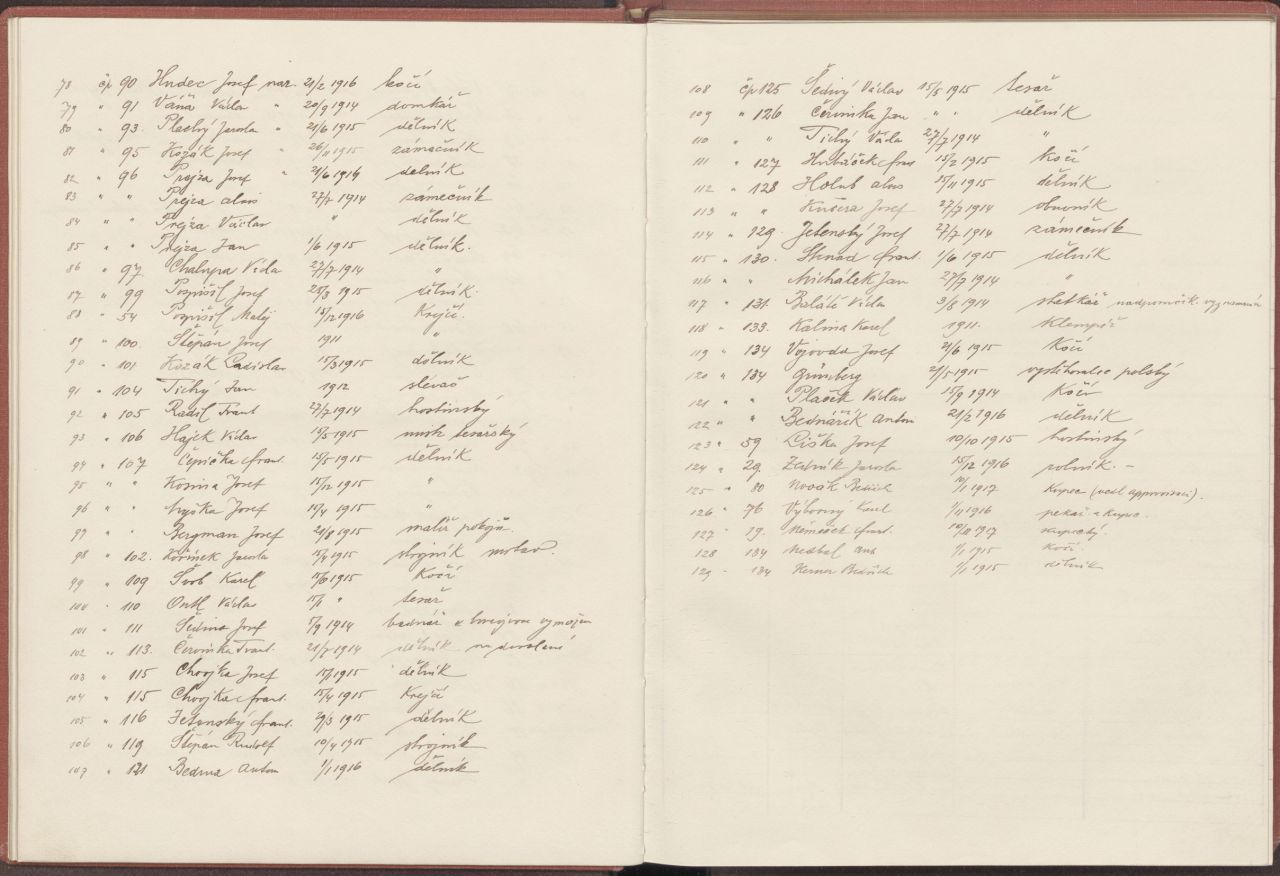 78 čp 90 Hudec Josef nar. 21/2 1916 kočí
79 " 91 Váňa Václa " 20/9 1914 domkář
80 " 93. Plachý Jarosla " 21/6 1915 dělník
81 " 95 Kozák Josef " 26/11 1915 zámečník
82 " 96 Prejza Josef " 21/6 1914 dělník
83 " " Prejza alois 27/7 1914 zámečník
84 " " Prejza Václav " dělník
85 " " Prejza Jan 1/6 1915 dělník.
86 " 97 Chalupa Václa 27/7 1914 "
87 " 99 Pospíšil Josef 25/3 1915 dělník.
88 " 54 Pospíšil Matěj 15/12 1916 Krejčí.
89 " 100. Štěpán Josef 1911 "
90 " 101 Kozák Ladislav 15/3 1915 dělník
91 " 104 Tichý Jan 1912 slévač
92 " 105 Radil Frant 27/7 1914 hostinský
93 " 106 Hajek Václav 15/5 1915 tesařský
94 " 107 Čepička frant. 15/5 1915 dělník
95 " " Kosina Josef 15/12 1915 "
96 " " Josef 15/4 1915 "
97 " " Bergman Josef 21/8 1915 malíř pokojů.
98 " 102. Kořínek Jarosla 15/4 1915 strojník
99 " 109 Švob Karel 15/6 1915 Kočí
100 " 110 Václav 15/1 " tesař
101 " 111 Šedina Josef 5/9 1914 bednář
102 " 113. Červinka Frant. 21/7 1914 dělník na dovolené
103 " 115 Chvojka Josef 15/1 1915 dělník
104 " 115 Chvojka frant. 15/4 1915 Krejčí
105 " 116 Jetenský frant. 29/3 1915 dělník
106 " 119 Štěpán Rudolf 10/4 1915 strojník
107 " 121 Bedrna Anton 1/1 1916 dělník
108 čp 125 Šedivý Václav 15/5 1915 tesař
109 " 126 Červinka Jan " " dělník
110 " " Tichý Václa 27/7 1914 "
111 " 127 Hubáček frant 15/2 1915 Kočí
112 " 128 Holub alois 15/11 1915 dělník
113 " " Kučera Josef 27/7 1914 obuvník
114 " 129. Jetenský Josef 27/7 1914 zámečník
115 " 130. frant. 1/6 1915 dělník
116 " " Michálek Jan 27/7 1914 "
117 " 131. Václa 3/8 1914
118 " 133. Kalina Karel 1911. Klempíř
119 " 134 Vojvoda Josef 21/6 1915 Kočí
120 " 134 Grünberg 21/5 1915 vystěhovalec polský
121 " " Plaček Václav 15/9 1914 Kočí
122 " " Bednářík Anton 21/2 1916 dělník
123 " 59 Liška Josef 10/10 1915 hostinský
124 " 29. Zedník Jarosla 15/12 1916 rolník. –
125 " 80 Novák Bedřich 10/1 1917 Kupec
126 " 76 Výborný Karel 1/11 1916 pekař a Kupec.
127 " 19. Němeček frant. 10/12 1917
128 " 134 Nedbal Ant 1/1 1915 kočí
129 " 134 Herner Bedřich 1/1 1915 dělník